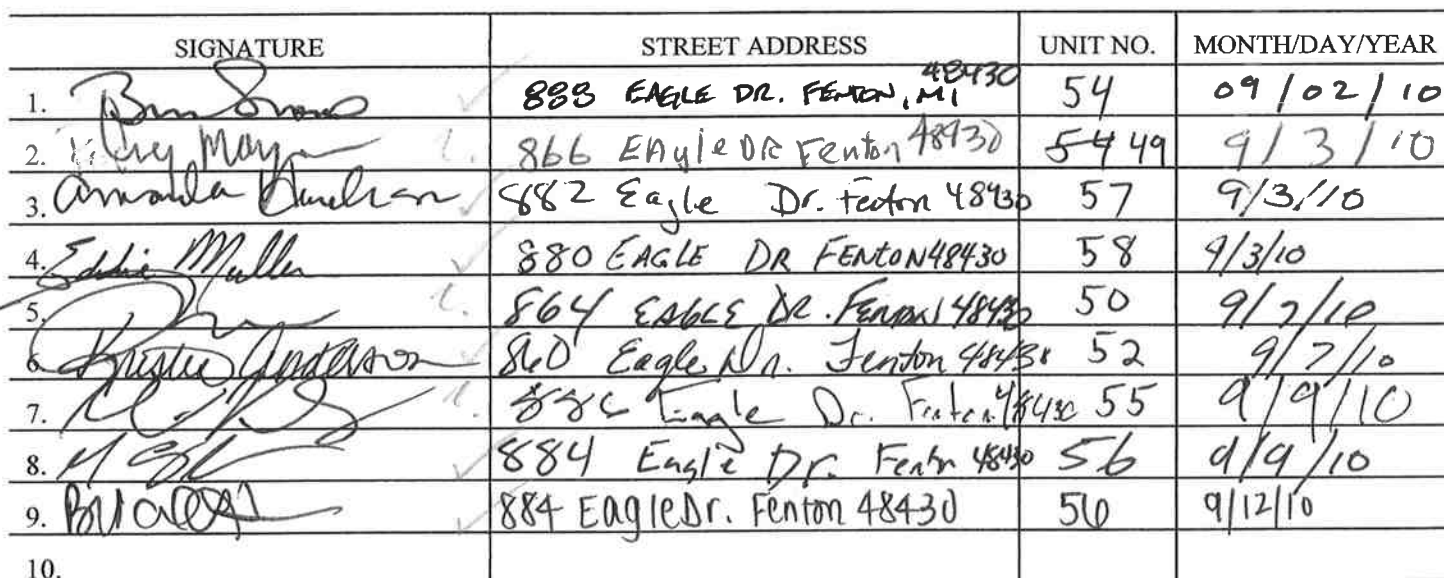 SIGNATURE STREET ADDRESS UNIT NO. MONTH/DAY/YEAR
1. 888 EAGLE DR. FENTON, MI 48430 54 09/02/10
2. 866 EAgle DR Fenton 48430 54 49 9/3/10
3. Amanda 882 Eagle Dr. Fenton 48430 57 9/3/10
4. Eddie Muller 880 EAGLE DR FENTON 48430 58 9/3/10
5. 864 EAGLE DR. FENTON 48430 50 9/7/10
6. Kristie Anderson 860 Eagle Dr. Fenton 48430 52 9/7/10
7. 886 Eagle Dr. Fenton 48430 55 9/9/10
8. 884 Eagle Dr. Fenton 48430 56 9/9/10
9. 884 Eagle Dr. Fenton 48430 56 9/12/10
10.